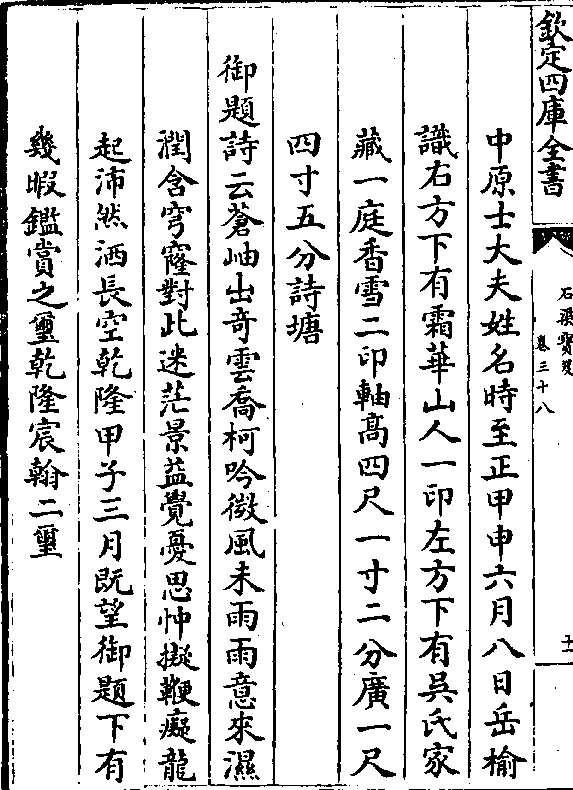 欽定四庫全書
石渠寶笈
卷三十八
十一
中原士大夫姓名時至正甲申六月八日岳榆
識右方下有霜華山人一印左方下有吳氏家
藏一庭香雪二印軸髙四尺一寸二分廣一尺
四寸五分詩塘
御題詩云蒼岫出奇雲喬柯吟微風未雨雨意來濕
潤含穹窿對此迷茫景益覺憂思忡擬鞭癡龍
起沛然洒長空乾隆甲子三月既望御題下有
幾暇鑑賞之璽乾隆宸翰二璽